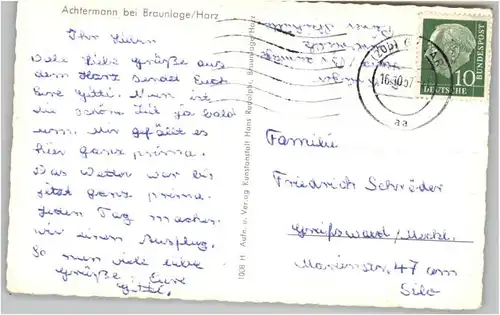 Achtermann bei Braunlage/Harz
Ihr Lieben
Viele liebe Grüße aus
dem Harz sendet Euch
Eure Gitti. Nun ist
die schöne Zeit ja bald
um. Mir gefällt es
hier ganz prima.
Das Wetter war bis
jetzt ganz prima.
Jeden Tag machen
wir einen Ausflug.
So nun viele liebe
Grüße Eure
Gitti.
1008 H Aufn. u. Verlag Kunstanstalt Hans Rudolph, Braunlage/Harz
16.10.57
aa
10
DEUTSCHE
BUNDESPOST
Familie
Friedrich Schröder
Greifswald/Meckl.
Marienstr. 47 am
Silo